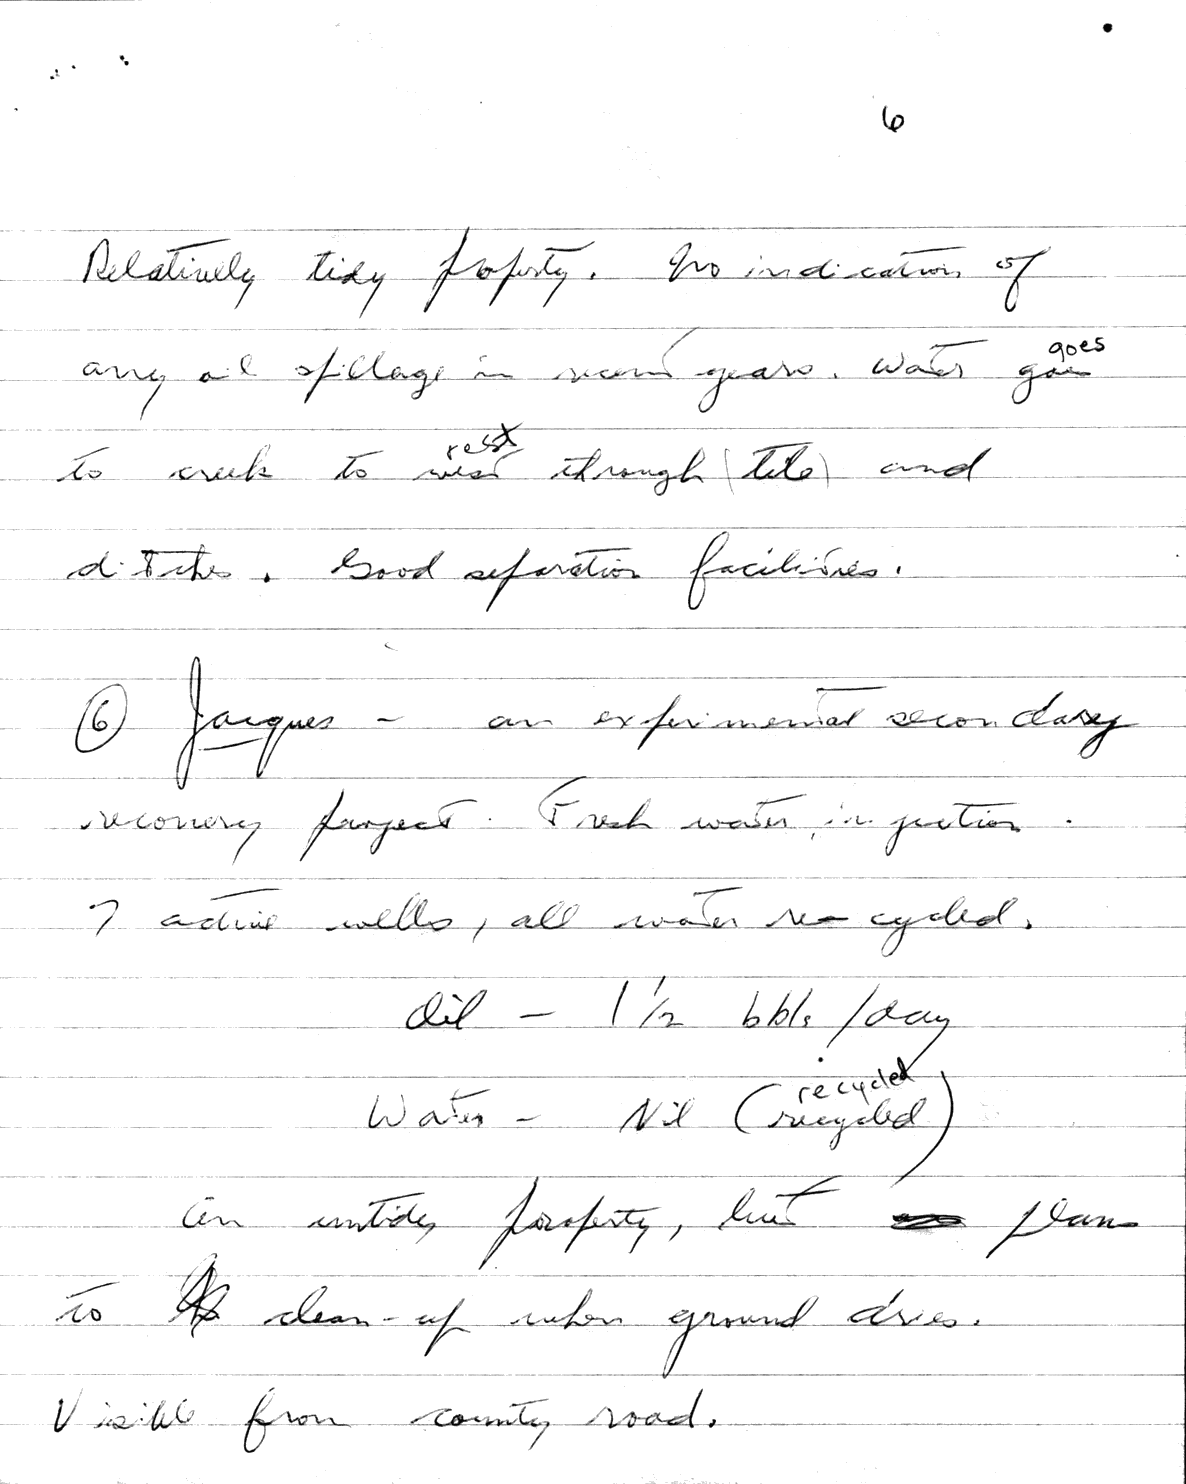 6
Relatively tidy property. No indication of
any oil spillage in recent years. Water goes goes
to creek to west rest through (tile) and
ditches. Good separation facilities.
6 Jacques - an experimental secondary
recovery project. Fresh water injection.
7 active wells, all water re-cycled.
Oil - 1 1/2 bbls/day
Water - Nil (recycled) recycled
An untidy property, but plan
to clean-up when ground dries.
Visible from county road.